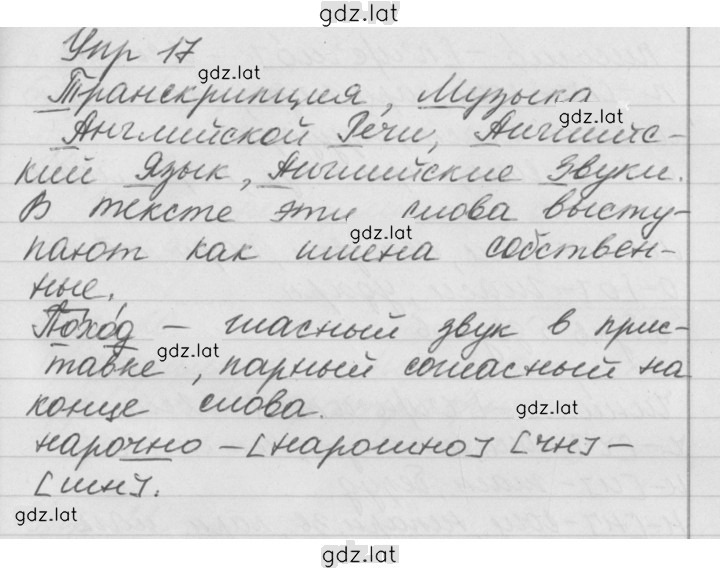 gdz.lat
Упр 17
gdz.lat
Транскрипция, Музыка
gdz.lat
Английской Речи, Английс-
кий Язык, Английские Звуки.
В тексте эти слова высту-
gdz.lat
пают как имена собствен-
ные.
Поход – гласный звук в прис-
gdz.lat
тавке, парный согласный на
конце слова.
gdz.lat
нарочно – [нарошно] [чн] –
[шн].
gdz.lat
gdz.lat